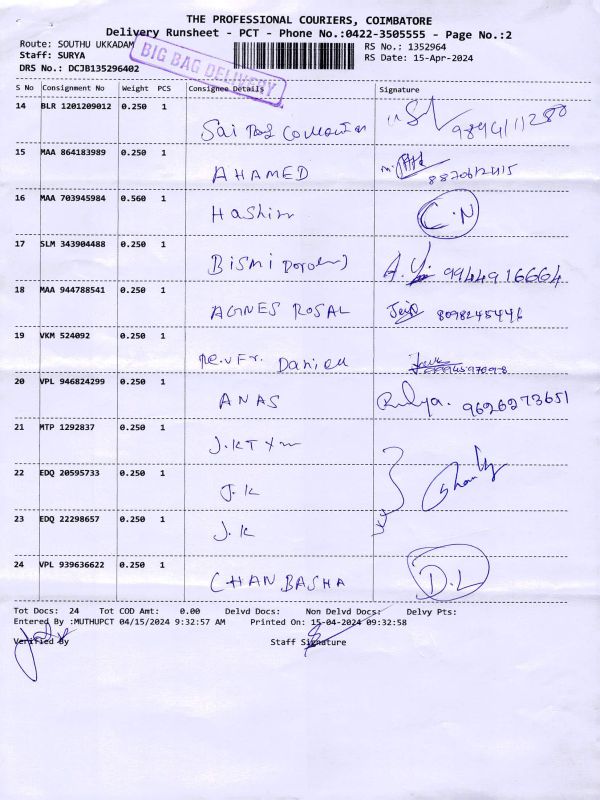 THE PROFESSIONAL COURIERS, COIMBATORE
Delivery Runsheet - PCT - Phone No.:0422-3505555 - Page No.:2
Route: SOUTHU UKKADAM
RS No.: 1352964
Staff: SURYA
RS Date: 15-Apr-2024
DRS No.: DCJB135296402
BIG BAG DELIVERY
S No Consignment No Weight PCS Consignee Details Signature
14 BLR 1201209012 0.250 1
Sai
15 MAA 864183989 0.250 1
AHAMED
16 MAA 703945984 0.560 1
Hashim C.N
17 SLM 343904488 0.250 1
BISMI 9944916664
18 MAA 944788541 0.250 1
AGNES ROSAL 8098245446
19 VKM 524092 0.250 1
Daniel
20 VPL 946824299 0.250 1
ANAS 9626273651
21 MTP 1292837 0.250 1
J.KT
22 EDQ 20595733 0.250 1
J.K
23 EDQ 22298657 0.250 1
J.K
24 VPL 939636622 0.250 1
CHANBASHA D.L
Tot Docs: 24 Tot COD Amt: 0.00 Delvd Docs: Non Delvd Docs: Delvy Pts:
Entered By :MUTHUPCT 04/15/2024 9:32:57 AM Printed On: 15-04-2024 09:32:58
Verified By Staff Signature